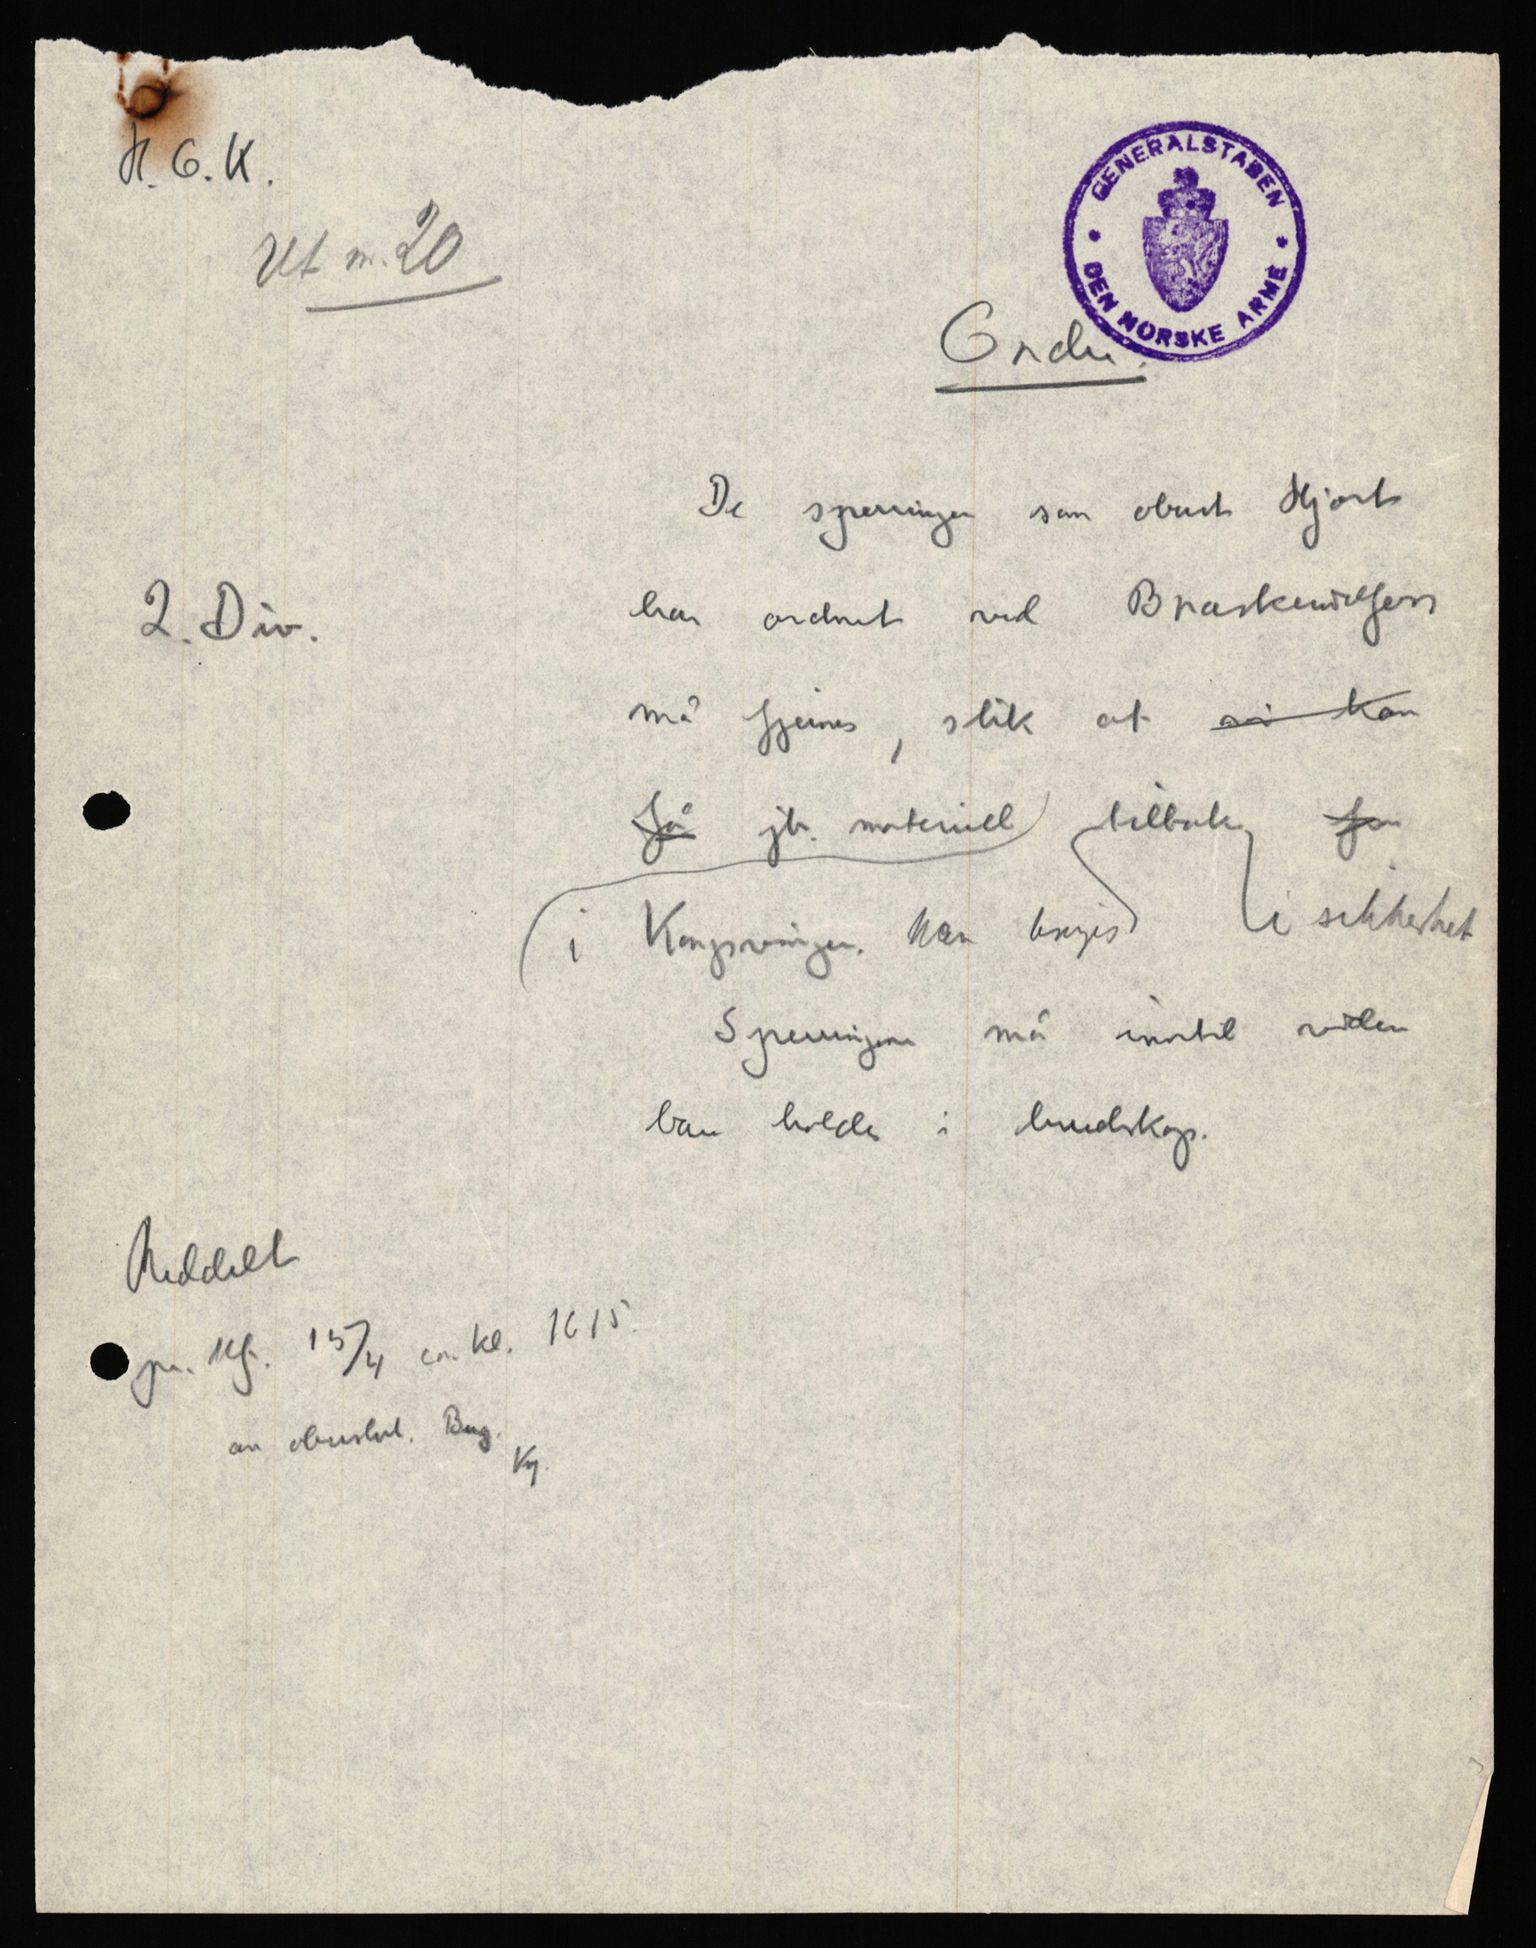 H.O.K.
Ut nr. 20
GENERALSTABEN
DEN NORSKE ARME
Ordre.
De sperringer som oberst Hjort
2. Div.
har ordnet ved
må fjernes, slik at vi kan
få jb. materiell tilbake fra
i Kongsvinger. kan bringes i sikkerhet
Sperringene må inntil videre
bare holdes i beredskap.
Meddelt
pr. tlf. 15/4 ca. kl. 1615.
av oberstlt.